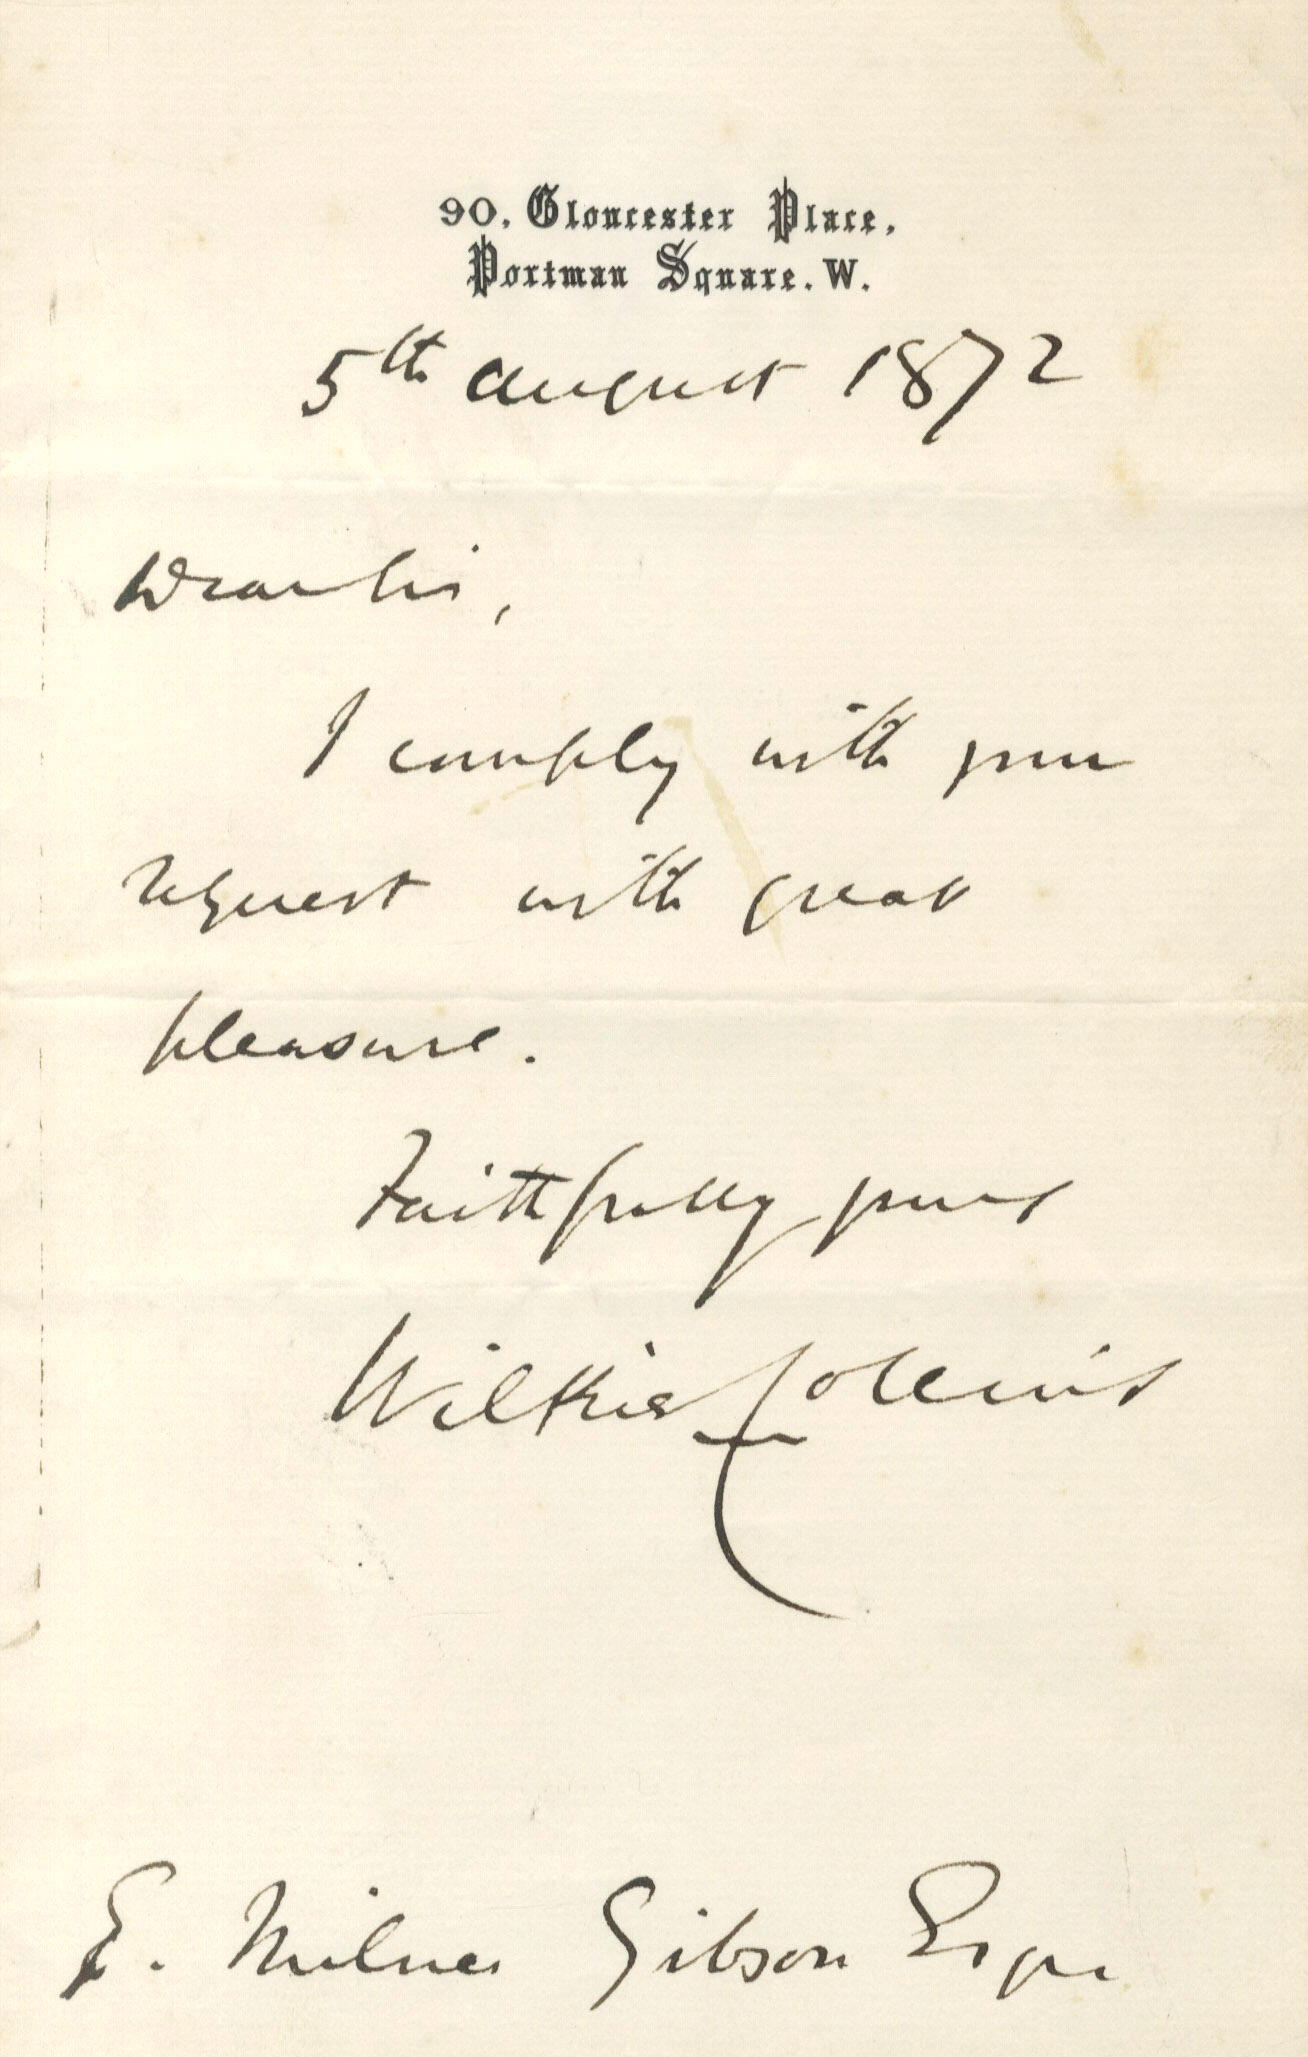 90, Gloucester Place,
Portman Square. W.
5th August 1872
Dear Sir,
I comply with your
request with great
pleasure.
Faithfully yours
Wilkie Collins
E. Milner Gibson Esqre